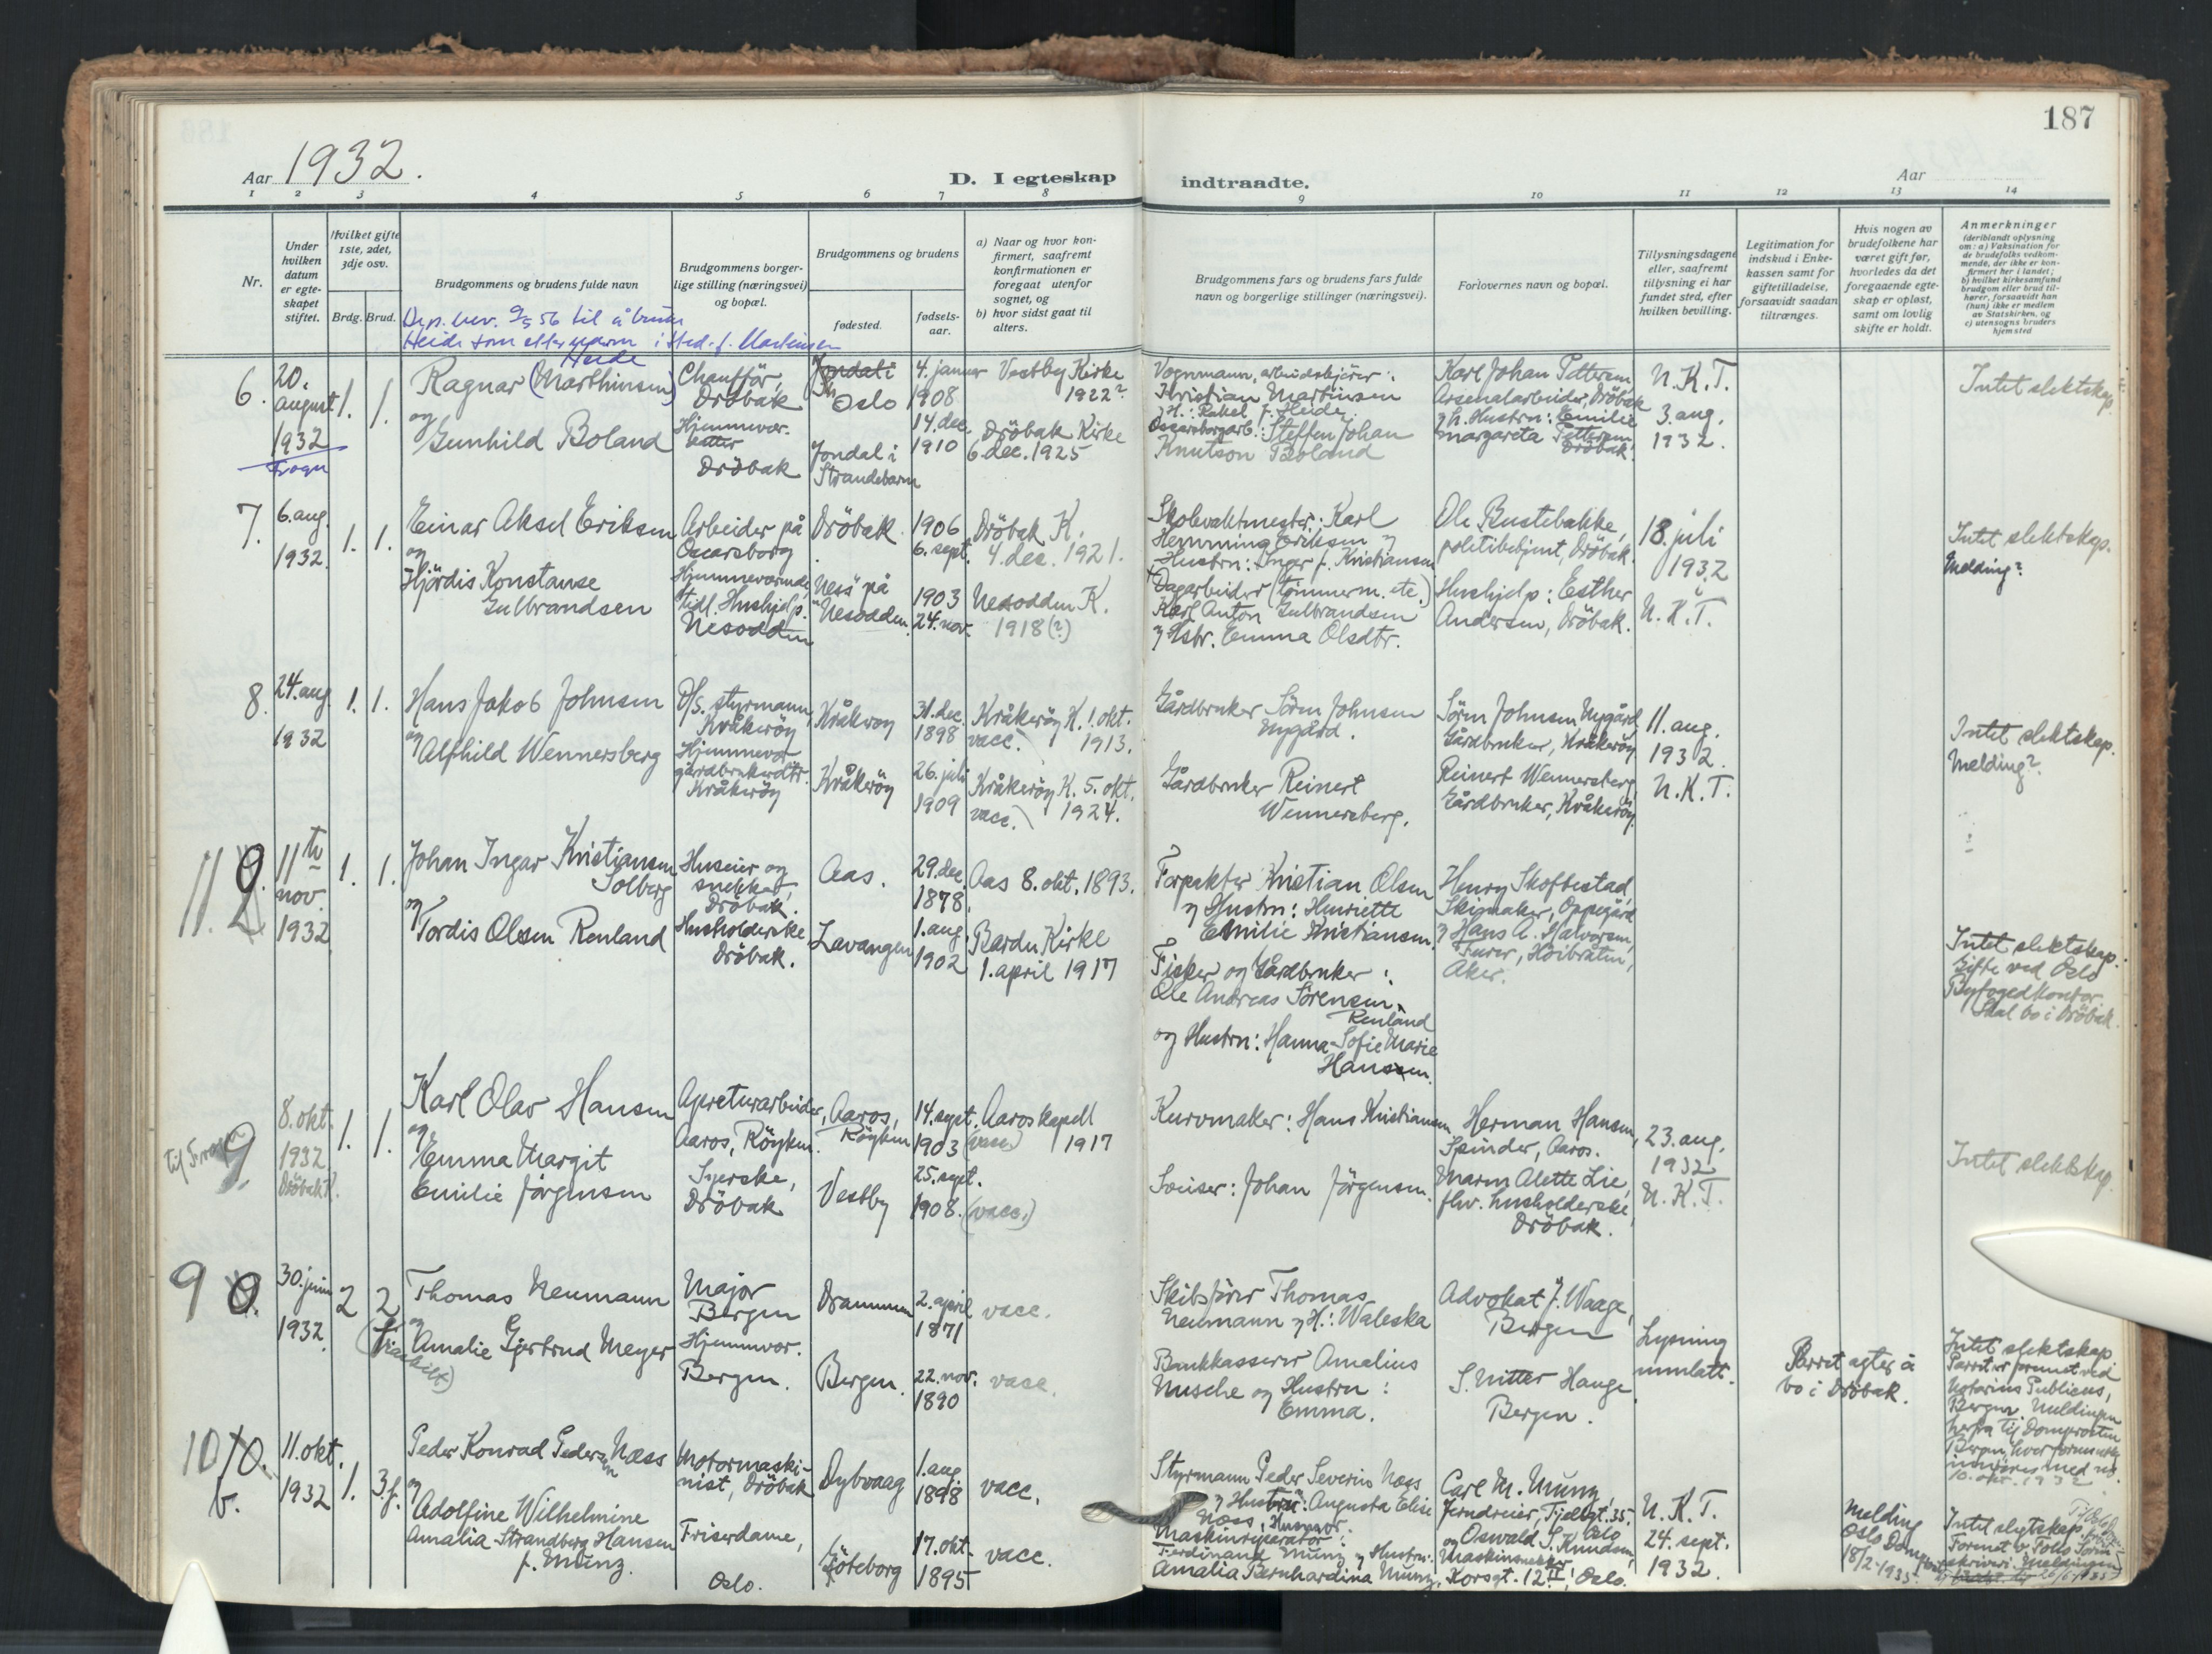 187
Aar 1932.
D. I egteskap indtraadte.
Aar
1 2 3 4 5 6 7 8 9 10 11 12 13 14
Nr.
Under
hvilken
datum
er egte-
skapet
stiftet.
Hvilket gifte
1ste, 2det,
3dje osv.
Brdg. Brud.
Brudgommens og brudens fulde navn
Brudgommens borger-
lige stilling (næringsvei)
og bopæl.
Brudgommens og brudens
fødested.
fødsels-
aar.
a) Naar og hvor kon-
firmert, saafremt
konfirmationen er
foregaat utenfor
sognet, og
b) hvor sidst gaat til
alters.
Brudgommens fars og brudens fars fulde
navn og borgerlige stillinger (næringsvei).
Forlovernes navn og bopæl.
Tillysningsdagene
eller, saafremt
tillysning ei har
fundet sted, efter
hvilken bevilling.
Legitimation for
indskud i Enke-
kassen samt for
giftetilladelse,
forsaavidt saadan
tiltrænges.
Hvis nogen av
brudefolkene har
været gift før,
hvorledes da det
foregaaende egte-
skap er opløst,
samt om lovlig
skifte er holdt.
Anmerkninger
(deriblandt oplysning
om: a) Vaksination for
de brudefolks vedkom-
mende, der ikke er kon-
firmert her i landet;
b) hvilket kirkesamfund
brudgom eller brud til-
hører, forsaavidt han
(hun) ikke er medlem
av Statskirken, og
c) utensogns bruders
hjemsted
Dep. bev. 9/5 56 til å bruke
Heide som etternavn i sted. f. Martinsen
Heide
6.
20.
august
1932
Frogn
1. 1.
Ragnar (Marthinsen)
og
Gunhild Boland
Chauffør,
Drøbak
Hjemmevær-
Drøbak
Jondal i
Oslo
Jondal i
Strandebarm
4. januar
1908
14. dec.
1910
Vestby Kirke
1922?
Drøbak Kirke
6. dec. 1925
Vognmann, arbeidskjører:
Kristian Martinsen
H.: Rakel f. Heide.
Oscarsborgarb.: Steffen Johan
Knutson Boland
Karl Johan Pettersen
Arsenalarbeider, Drøbak
h. Hustru: Emilie
Margareta Pettersen
Drøbak.
N. K. T.
3. aug.
1932.
Intet slektskap.
7.
6. aug.
1932.
1. 1.
Einar Aksel Eriksen
og
Hjørdis Konstanse
Gulbrandsen
Arbeider på
Oscarsborg
Hjemmeværende,
tidl. Hushjelp.
Nesodden
Drøbak
Ness på
Nesodden.
1906
6. sept.
1903
24. nov.
Drøbak K.
4. dec. 1921.
Nesodden K.
1918 (?)
Skolevaktmester: Karl
Hemming Eriksen og
Hustru: Inger f. Kristiansen
Dagarbeider (tømmerm. etc.)
Karl Anton Gulbrandsen
og Hstr. Emma Olsdtr.
Ole Bustebakke,
politibetjent, Drøbak.
Hushjelp: Esther
Andersen, Drøbak.
18. juli
1932
N. K. T.
Intet slektskap.
Melding?
8.
24. aug.
1932
1. 1.
Hans Jakob Johnsen
og
Alfhild Wennersberg
D/S. styrmann,
Kråkerøy
Hjemmevær
gårdbrukerdtr.
Kråkerøy
Kråkerøy
Kråkerøy
31. dec.
1898
26. juli
1909
Kråkerøy K. 1. okt.
vacc. 1913.
Kråkerøy K. 5. okt.
vacc. 1924.
Gårdbruker Søren Johnsen
Nygård.
Gårdbruker Reinert
Wennersberg.
Søren Johnsen Nygård
Gårdbruker, Kråkerøy
Reinert Wennersberg,
Gårdbruker, Kråkerøy.
11. aug.
1932.
N. K. T.
Intet slektskap.
Melding?
11. 9.
11te
nov.
1932
1. 1.
Johan Ingar Kristiansen
Solberg
og
Tordis Olsen Renland
Huseier og
snekker,
Drøbak.
Husholderske
Drøbak.
Aas.
Lavangen
29. dec.
1878.
1. aug.
1902
Aas 8. okt. 1893.
Bardu Kirke
1. april 1917
Forpakter Kristian Olsen
og Hustru: Henriette
Emilie Kristiansen.
Fisker og Gårdbruker:
Ole Andreas Sørensen
Renland
og Hustru: Hanna Sofie Marie
Hansen.
Henry Skofbestad,
Skimaker, Oppegård
og Hans A. Halvorsen,
Furer, Høibråten,
Aker.
Intet slektskap.
Gifte ved Oslo
Byfogedkontor.
Skal bo i Drøbak.
til Frogn
9.
8. okt.
1932
Drøbak K.
1. 1.
Karl Olav Hansen
og
Emma Margit
Emilie Jørgensen
Apreturarbeider,
Aaros, Røyken.
Syerske,
Drøbak
Aaros,
Røyken
Vestby
14. sept.
1903
25. sept.
1908.
Aaros kapell
(vacc) 1917
(vacc.)
Kurvmaker: Hans Kristiansen
Johan Jørgensen.
Herman Hansen,
Spinder, Aaros.
Maren Alette Lie,
fhv. husholderske,
Drøbak.
23. aug.
1932
N. K. T.
Intet slektskap.
9 0.
30. juni
1932.
2 2
(fraskilt)
Thomas Neumann
og
Amalie Gjertrud Meyer
Major
Bergen
Hjemmevær.
Bergen.
Drammen
Bergen.
2. april
1871
22. nov.
1890
vacc.
vacc.
Skibsfører Thomas
Neumann og H.: Waleska
Bankkasserer Amalius
Nusche og Hustru:
Emma.
Advokat J. Waage,
Bergen
S. Nitter Hauge
Bergen.
Lysning
unnlatt.
Parret agter å
bo i Drøbak.
Intet slektskap
Parret er formet ved
Notarius Publicus,
Bergen. Meldingen
herfra til Domprosten
Bergen,
10. okt. 1932.
10 10.
b.
11. okt.
1932
1. 3. f.
Peder Konrad Pedersen Næss
og
Adolfine Wilhelmine
Amalia Strandberg Hansen
f. Munz.
Motormaski-
nist, Drøbak
Friserdame,
Oslo.
Dybvaag
Gøteborg
1. aug.
1898
17. okt.
1895
vacc.
vacc.
Styrmann Peder Severin Næss
og Hustru: Augusta Elise
Næss, Husmor.
Maskinreparatør:
Ferdinand Munz og Hustru:
Amalia Bernhardina Munz,
Carl M. Munz,
Jerndreier, Fjellgt. 35.
Oslo
og Oswald S. Knudsen,
Maskinsnekker,
Korsgt. 12 II, Oslo.
N. K. T.
24. sept.
1932.
Melding
Oslo Domprost
18/2-1935.
Intet slektskap.